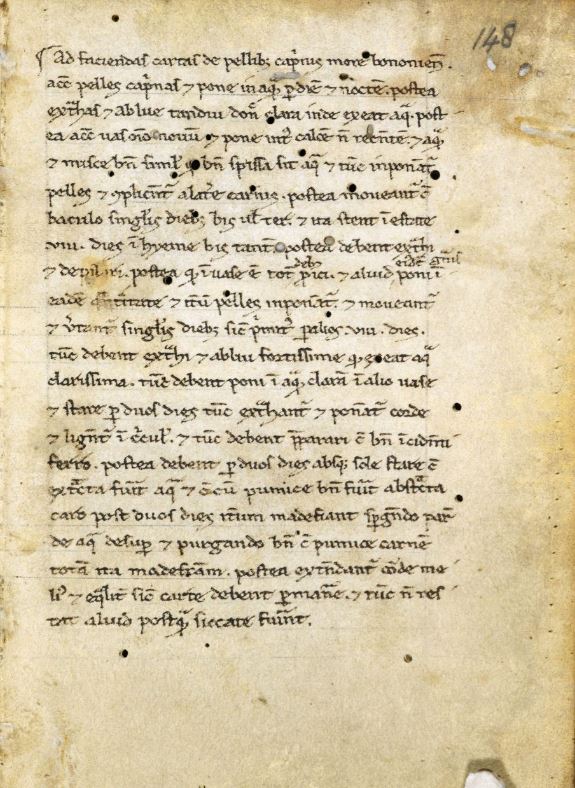 148
Ad faciendas cartas de pellib; cap̄nis more bononien̄.
acc̄ pelles cap̄nas ⁊ pone in aq̄ p̱ diē ⁊ noctē. postea
ext̄has ⁊ ablue tandiu don̄ clara inde exeat aq̄. post
ea acc̄ uas oīo nouū ⁊ pone int̄ calcē n̄ recētē ⁊ aq̄
⁊ misce bn̄ simil̄ ⁊ bn̄ spissa sit aq̄ ⁊ tūc inponat̄
pelles ⁊ ꝯplicent̄ a latere carnis. postea moueant̄ c̄
baculo singlis̄ dieb; bis ul̄ ter. ⁊ ita stent ī estate
viii. dies ī hyeme bis tant̄. postea debent ext̄hi
deb;
eidē simil̄
⁊ depilari. postea q̄ ī uase ē tot̄ p̱ici. ⁊ aliud poni ī
eadē q̄ntitate ⁊ it̄u pelles inponat̄. ⁊ moueant̄
⁊ v̄tant̄ singlis̄ dieb; sic̄ p̄mit̄ p̱ alios viii. dies.
tūc debent ext̄hi ⁊ ablui fortissime q̄ exeat aq̄
clarissima. tūc debent poni ī aq̄ clarā ī alio uase
⁊ stare p̱ duos dies tūc ext̄hant̄ ⁊ ponāt̄ corde
⁊ ligent̄ ī c̄cul̄. ⁊ tūc debent p̄parari c̄ bn̄ īcidēti
ferro. postea debent p̱ duos dies absq; sole stare c̄
ext̄cta fūit aq̄ ⁊ c̄cū pumice bn̄ fūit abst̄cta
caro post duos dies it̄um madefiant sp̱gēdo par̄
de aq̄ desup̱ ⁊ purgando bn̄ c̄ pumice carnē
totā ita madefcām. postea extēdant̄ cōde me
li᷒ ⁊ eq̄lit̄ sic̄ carte debent p̱mane̅. ⁊ tūc n̄ res
tat aliud postq̄ siccate fūint.